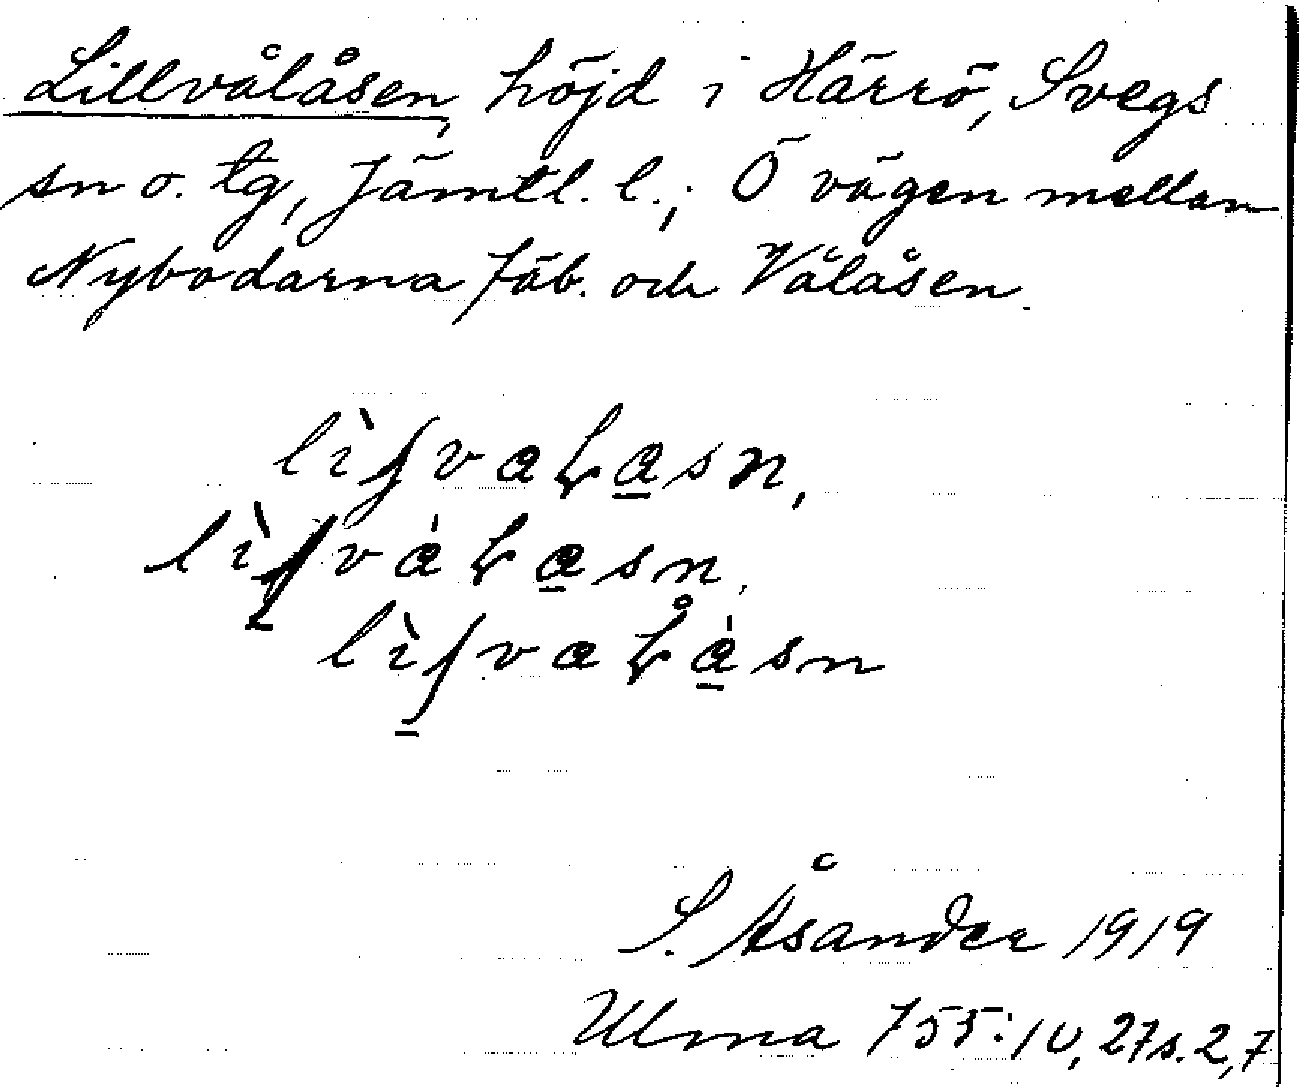 Lillvålåsen, höjd i Härrö, Svegs
sn o. tg, Jämtl. l.; Ö vägen mellan
Nybodarna fäb. och Vålåsen.
S. Åsander 1919
Ulma 755:10, 27 s. 2, 7